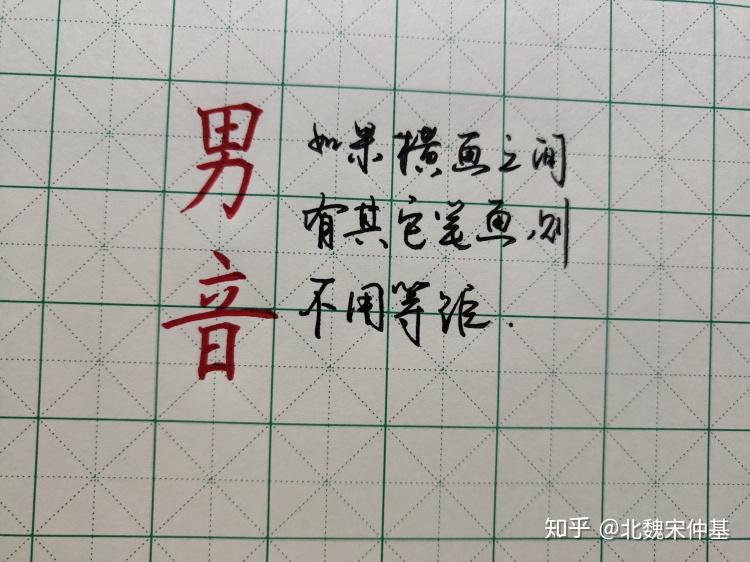 男
音
如果横画之间
有其它笔画,则
不用等距.
知乎 @北魏宋仲基